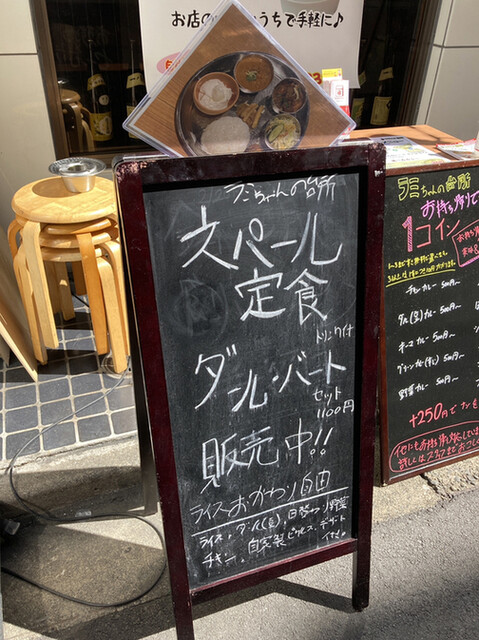 お店の
うちで手軽に♪
ラミちゃんの台所
スパール
定食
ドリンク付
ダール・バート
セット
1100円
販売中!!
ライスおかわり自由
ライス、ダール(豆)、日替わり野菜
チキン、自家製ピクルス、デザート
ラミちゃんの台所
お持ち帰りで
1コイン
チキンカレー 500円~
ダル(豆)カレー 500円~
キーマカレー 500円~
野菜カレー 500円~
+250円で